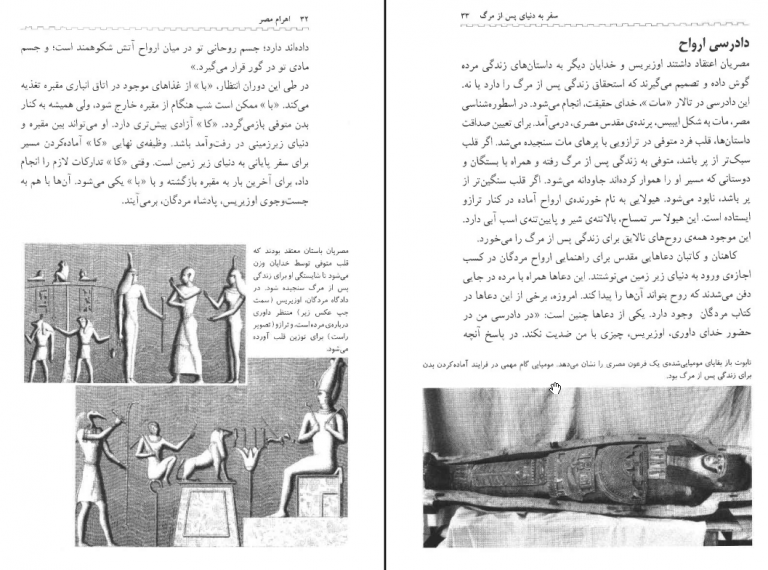 ۳۲ اهرام مصر
داده‌اند دارد؛ جسم روحانی تو در میان ارواح آتش شکوهمند است؛ و جسم
مادی تو در گور قرار می‌گیرد.»
در طی این دوران انتظار، «با» از غذاهای موجود در اتاق انباری مقبره تغذیه
می‌کند. «با» ممکن است شب هنگام از مقبره خارج شود، ولی همیشه به کنار
بدن متوفی بازمی‌گردد. «کا» آزادی بیش‌تری دارد. او می‌تواند بین مقبره و
دنیای زیرزمینی در رفت‌وآمد باشد. وظیفه‌ی نهایی «کا» آماده‌کردن مسیر
برای سفر پایانی به دنیای زیر زمین است. وقتی «کا» تدارکات لازم را انجام
داد، برای آخرین بار به مقبره بازگشته و با «با» یکی می‌شود. آن‌ها با هم به
جست‌وجوی اوزیریس، پادشاه مردگان، برمی‌آیند.
مصریان باستان معتقد بودند که
قلب متوفی توسط خدایان وزن
می‌شود تا شایستگی او برای زندگی
پس از مرگ سنجیده شود. در
دادگاه مردگان، اوزیریس (سمت
چپ عکس زیر) منتظر داوری
درباره‌ی مرده است، و ترازو (تصویر
راست) برای توزین قلب آورده
می‌شود.
سفر به دنیای پس از مرگ ۳۳
دادرسی ارواح
مصریان اعتقاد داشتند اوزیریس و خدایان دیگر به داستان‌های زندگی مرده
گوش داده و تصمیم می‌گیرند که استحقاق زندگی پس از مرگ را دارد یا نه.
این دادرسی در تالار «مات»، خدای حقیقت، انجام می‌شود. در اسطوره‌شناسی
مصر، مات به شکل ایبیس، پرنده‌ی مقدس مصری، درمی‌آمد. برای تعیین صداقت
داستان‌ها، قلب فرد متوفی در ترازویی با پرهای مات سنجیده می‌شد. اگر قلب
سبک‌تر از پر باشد، متوفی به زندگی پس از مرگ رفته و همراه با بستگان و
دوستانی که مسیر او را هموار کرده‌اند جاودانه می‌شود. اگر قلب سنگین‌تر از
پر باشد، نابود می‌شود. هیولایی به نام خورنده‌ی ارواح آماده در کنار ترازو
ایستاده است. این هیولا سر تمساح، بالاتنه‌ی شیر و پایین‌تنه‌ی اسب آبی دارد.
این موجود همه‌ی روح‌های نالایق برای زندگی پس از مرگ را می‌خورد.
کاهنان و کاتبان دعاهایی مقدس برای راهنمایی ارواح مردگان در کسب
اجازه‌ی ورود به دنیای زیر زمین می‌نوشتند. این دعاها همراه با مرده در جایی
دفن می‌شدند که روح بتواند آن‌ها را پیدا کند. امروزه، برخی از این دعاها در
کتاب مردگان وجود دارد. یکی از دعاها چنین است: «در دادرسی من در
حضور خدای داوری، اوزیریس، چیزی با من ضدیت نکند. در پاسخ آنچه
تابوت باز بقایای مومیایی‌شده‌ی یک فرعون مصری را نشان می‌دهد. مومیایی گام مهمی در فرایند آماده‌کردن بدن
برای زندگی پس از مرگ بود.